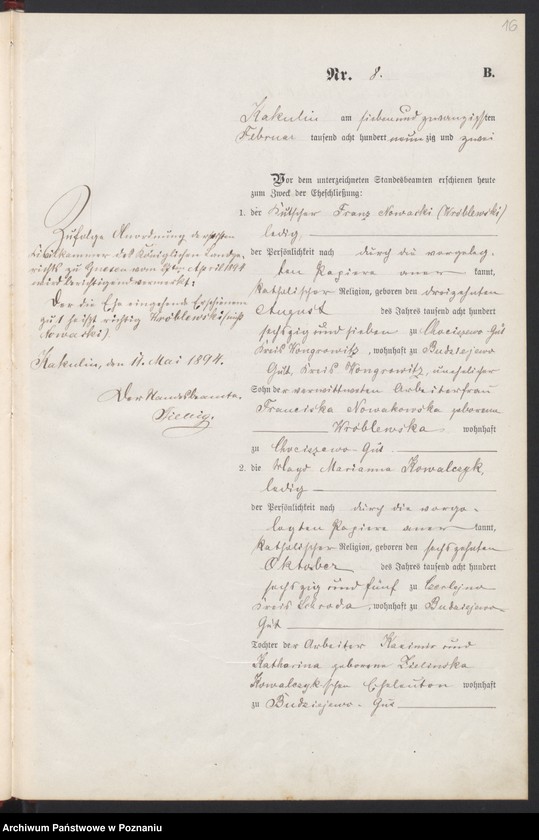 16
Nr. 8. B.
Kakulin am sieben und zwanzigsten
Februar tausend acht hundert neunzig und zwei
Vor dem unterzeichneten Standesbeamten erschienen heute
zum Zweck der Eheschließung:
1. der Kutscher Franz Nowacki (Wróblewski)
ledig
der Persönlichkeit nach durch die vorgeleg-
ten Papiere aner kannt,
katholischer Religion, geboren den dreizehnten
August des Jahres tausend acht hundert
sechszig und sieben zu Chociszewo-Gut
Kreis Wongrowitz, wohnhaft zu Budziejewo
Gut, Kreis Wongrowitz, unehelicher
Sohn der verwittweten Arbeiterfrau
Franciska Nowakowska geborene
Wróblewska wohnhaft
zu Chociszewo-Gut
2. die Magd Marianna Kowalczyk,
ledig
der Persönlichkeit nach durch die vorge-
legten Papiere aner kannt,
katholischer Religion, geboren den sechszehnten
Oktober des Jahres tausend acht hundert
sechszig und fünf zu
Kreis Schroda, wohnhaft zu Budziejewo
Gut
Tochter der Arbeiter Kasimir und
Katharina geborene Zielinska
Kowalczyk'schen Eheleuten wohnhaft
zu Budziejewo-Gut
Zufolge Anordnung der
Civilkammer des Königlichen Landge-
richts zu Gnesen vom April 1894
wird berichtigend vermerkt:
Der die Ehe eingehende Erschienene
zu 1 heißt richtig Wróblewski (nicht
Nowacki)
Kakulin, den 11. Mai 1894.
Der Standesbeamte.
Archiwum Państwowe w Poznaniu